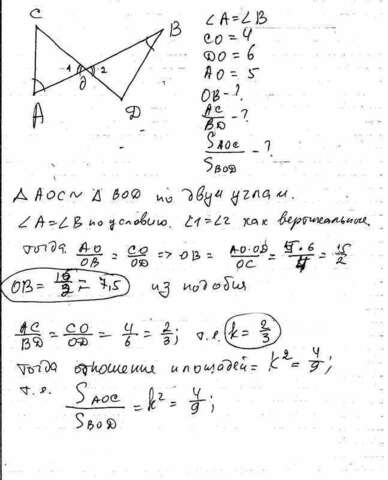 C
B
1
2
O
A
D
∠A = ∠B
CO = 4
DO = 6
AO = 5
OB - ?
AC/BD - ?
S_AOC/S_BOD - ?
△AOC ~ △BOD по двум углам.
∠A = ∠B по условию. ∠1 = ∠2 как вертикальные
тогда AO/OB = CO/OD => OB = AO·OD/OC = 5·6/4 = 15/2
OB = 15/2 = 7,5 из подобия
AC/BD = CO/OD = 4/6 = 2/3; т.е. k = 2/3
Тогда отношение площадей = k² = 4/9;
т.е.
S_AOC/S_BOD = k² = 4/9;